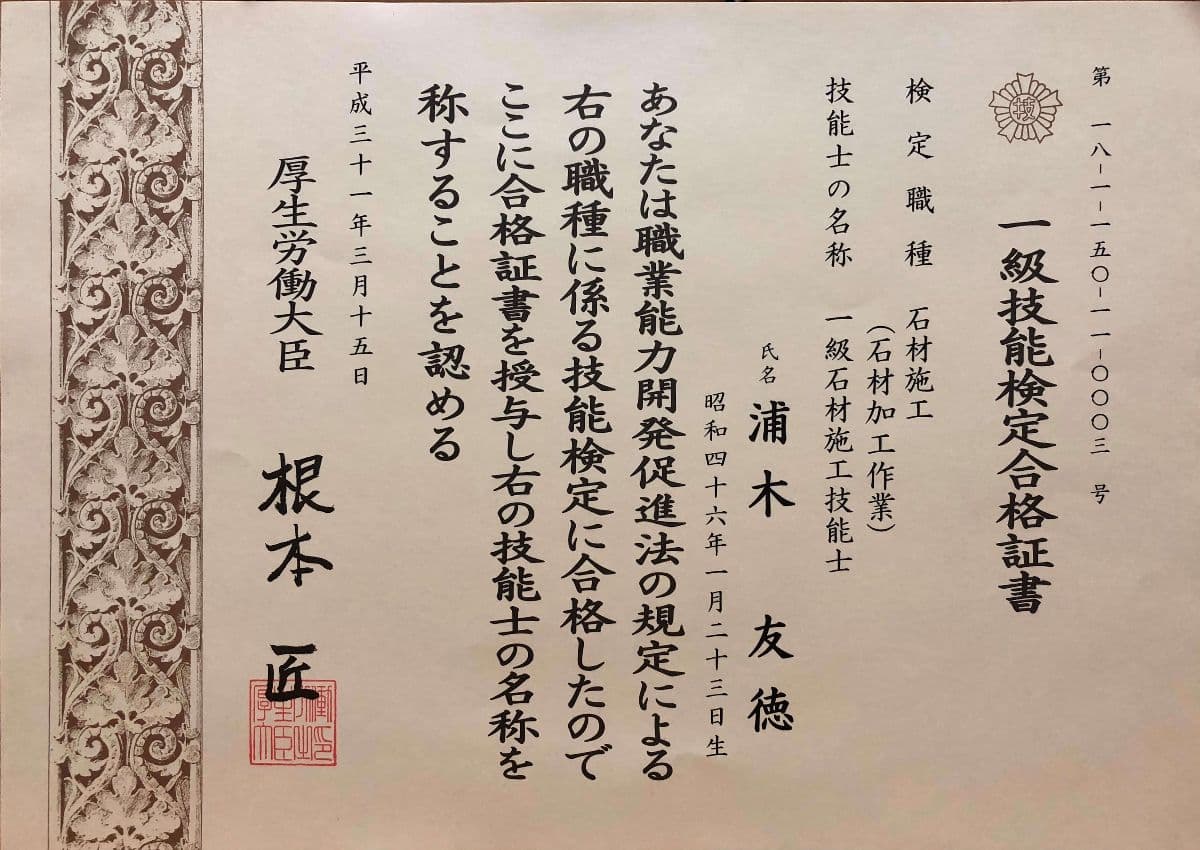 第一八-一-一五〇-一一-〇〇〇三号
技
一級技能検定合格証書
検定職種 石材施工
(石材加工作業)
技能士の名称 一級石材施工技能士
氏名 浦木 友徳
昭和四十六年一月二十三日生
あなたは職業能力開発促進法の規定による
右の職種に係る技能検定に合格したので
ここに合格証書を授与し右の技能士の名称を
称することを認める
平成三十一年三月十五日
厚生労働大臣 根本 匠